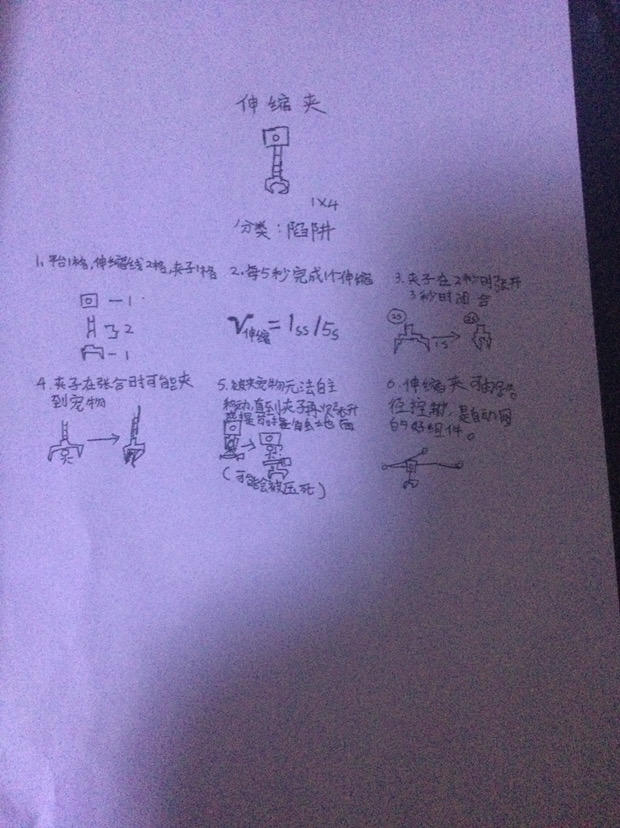 伸缩夹
1×4
分类：陷阱
1、平台1格，伸缩线2格，夹子1格
一1
2
一1
2、每5秒完成1个伸缩
V伸缩=1ss/5s
3、夹子在2秒时张开
3秒时闭合
2s
1s
4、夹子在张合时可能夹
到宠物
5、被夹宠物无法自主
移动，直到夹子再次张开
(可能会被压死)
6、伸缩夹可由
径控制，是自动
的好组件。